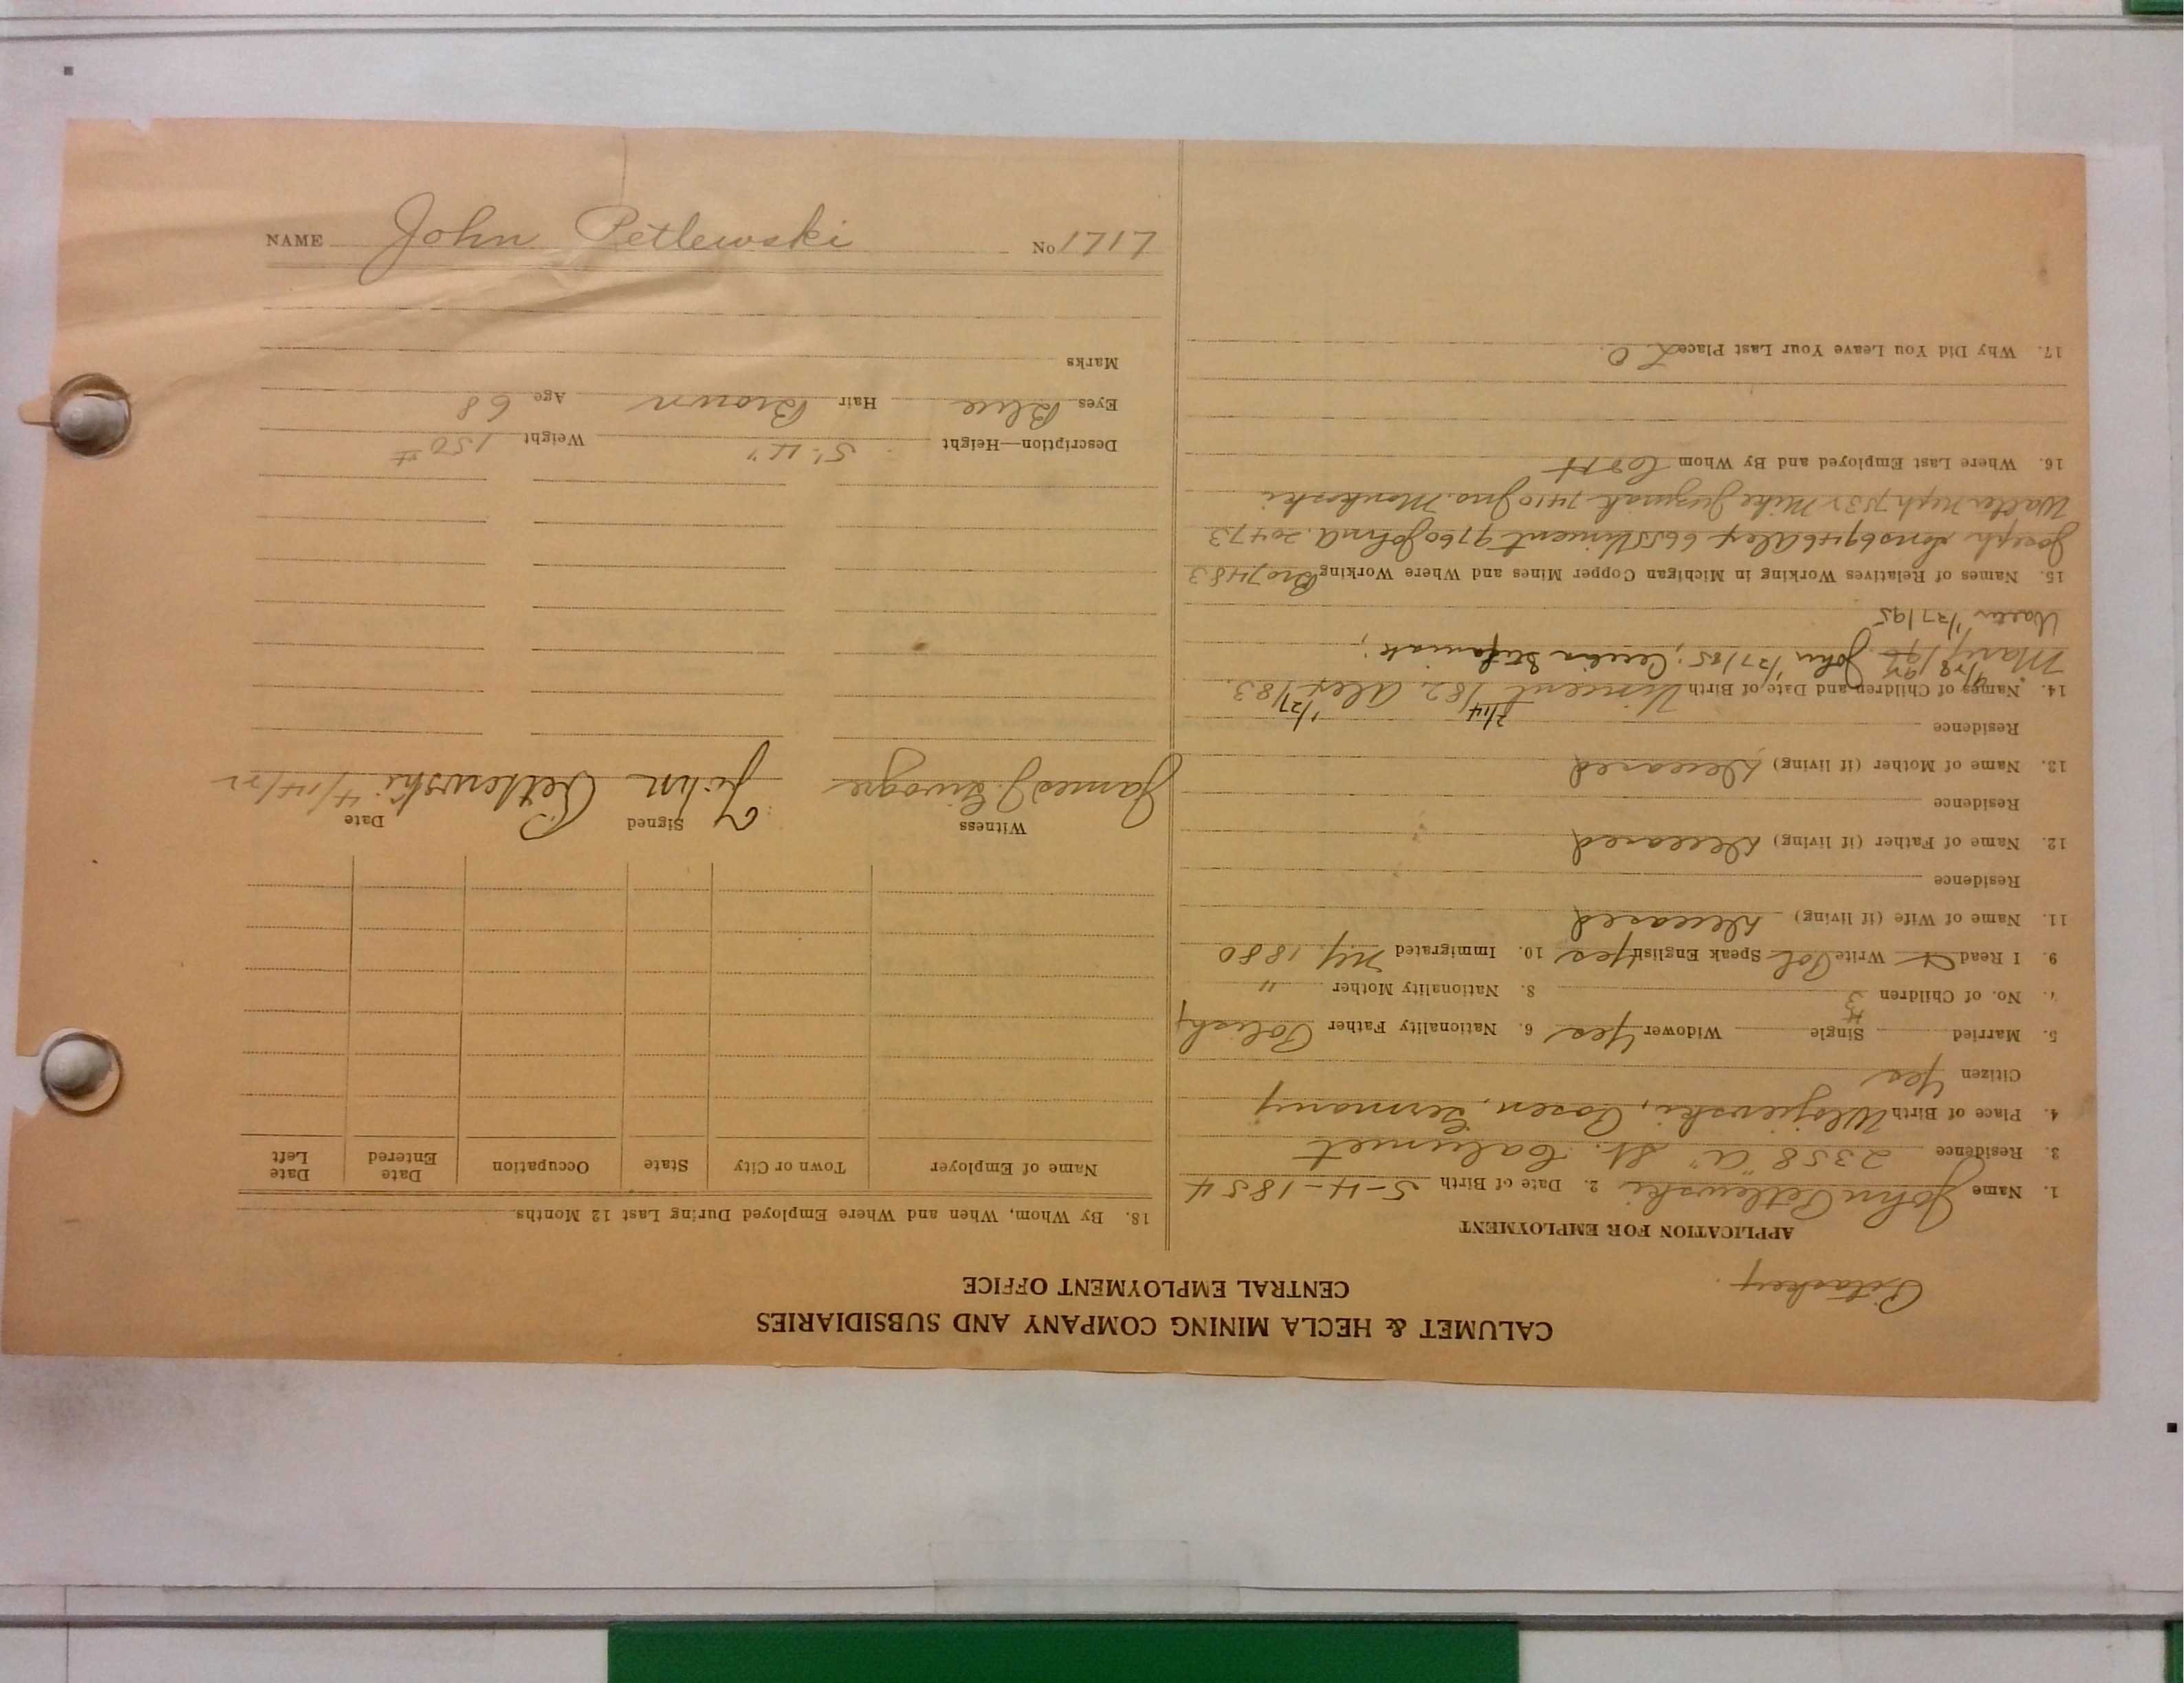 CALUMET & HECLA MINING COMPANY AND SUBSIDIARIES
CENTRAL EMPLOYMENT OFFICE
APPLICATION FOR EMPLOYMENT
1. Name John Petlewski 2. Date of Birth 5-4-1854
3. Residence 2358 "A" St. Calumet
4. Place of Birth Posen, Germany
Citizen Yes
5. Married Single Widower Yes 6. Nationality Father Polish
7. No. of Children 8. Nationality Mother "
9. I Read Write Pol Speak English Yes 10. Immigrated N.Y. 1880
11. Name of Wife (if living) Deceased
Residence
12. Name of Father (if living) Deceased
Residence
13. Name of Mother (if living) Deceased
Residence
14. Names of Children and Date of Birth Vincent 2/14/82 Alex 1/27/83
Mary John 1/27/85; Cecilia
Walter 1/27/95
15. Names of Relatives Working in Michigan Copper Mines and Where Working Bro 7483
Joseph Sons 6946 Alex 6655 Vincent 9760 John A. 20473
Walter Neph 7532 Mike 7410 Jno.
16. Where Last Employed and By Whom C&H
17. Why Did You Leave Your Last Place L.O.
18. By Whom, When and Where Employed During Last 12 Months
Name of Employer Town or City State Occupation Date Entered Date Left
Witness Signed Date
James J. John Petlewski 4/14/22
Description—Height 5'-4" Weight 150#
Eyes Blue Hair Brown Age 68
Marks
NAME John Petlewski No. 17177